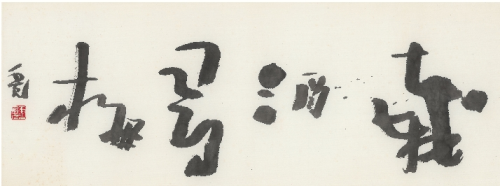 載酒尋梅